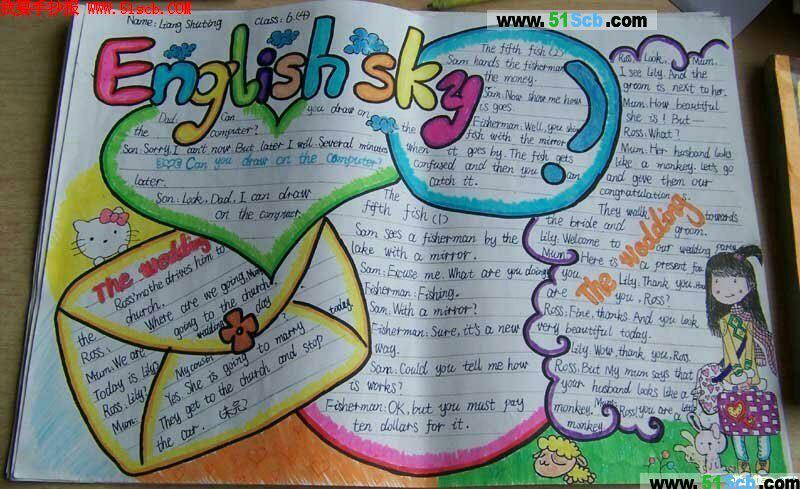 我爱手抄报
www.51scb.com
www.51Scb.com
Name: Liang Shuting Class: 6.(4)
English sky
Dad: Can you draw on
the computer?
Son: Sorry, I can't now. But later I will. Several minutes
Can you draw on the computer?
later.
Son: Look, Dad, I can draw
on the computer.
The wedding
Ross mo the drives him to
the church.
Ross. Where are we going, Mum
Mum: We are going to the church.
Today is Lily wedding day
Ross. Lily? My cousin today
Mum: Yes. She is going to marry
They get to the church and stop
the car.
The fifth fish (1)
Sam sees a fisherman by the
lake with a mirror.
Sam: Excuse me. What are you doing
Fisherman: Fishing.
Sam: With a mirror?
Fisherman: Sure, it's a new
way.
Sam: Could you tell me how
is works?
Fisherman: OK, but you must pay
ten dollars for it.
The fifth fish (2)
Sam hands the fisherman
the money.
Sam: Now show me how
is goes.
Fisherman: Well, you show
the fish with the mirror
when it goes by. The fish gets
confused and then you can
catch it.
Ross: Look, Mum.
I see Lily. And the
groom is next to her.
Mum: How beautiful
she is! But—
Ross: What?
Mum: Her husband looks
like a monkey. let's go
and give them our
congratulation s.
They walk towards
the bride and groom.
Lily: Welcome to our wedding party
Mum: Here is a present for
you.
Lily: Thank you. How
are you, Ross?
Ross: Fine, thanks. And you look
very beautiful today.
Lily: Wow, thank you, Ross.
Ross: But My mum says that
your husband looks like a
monkey.
Mum: Ross! you are a little
monkey
The wedding
www.51Scb.com